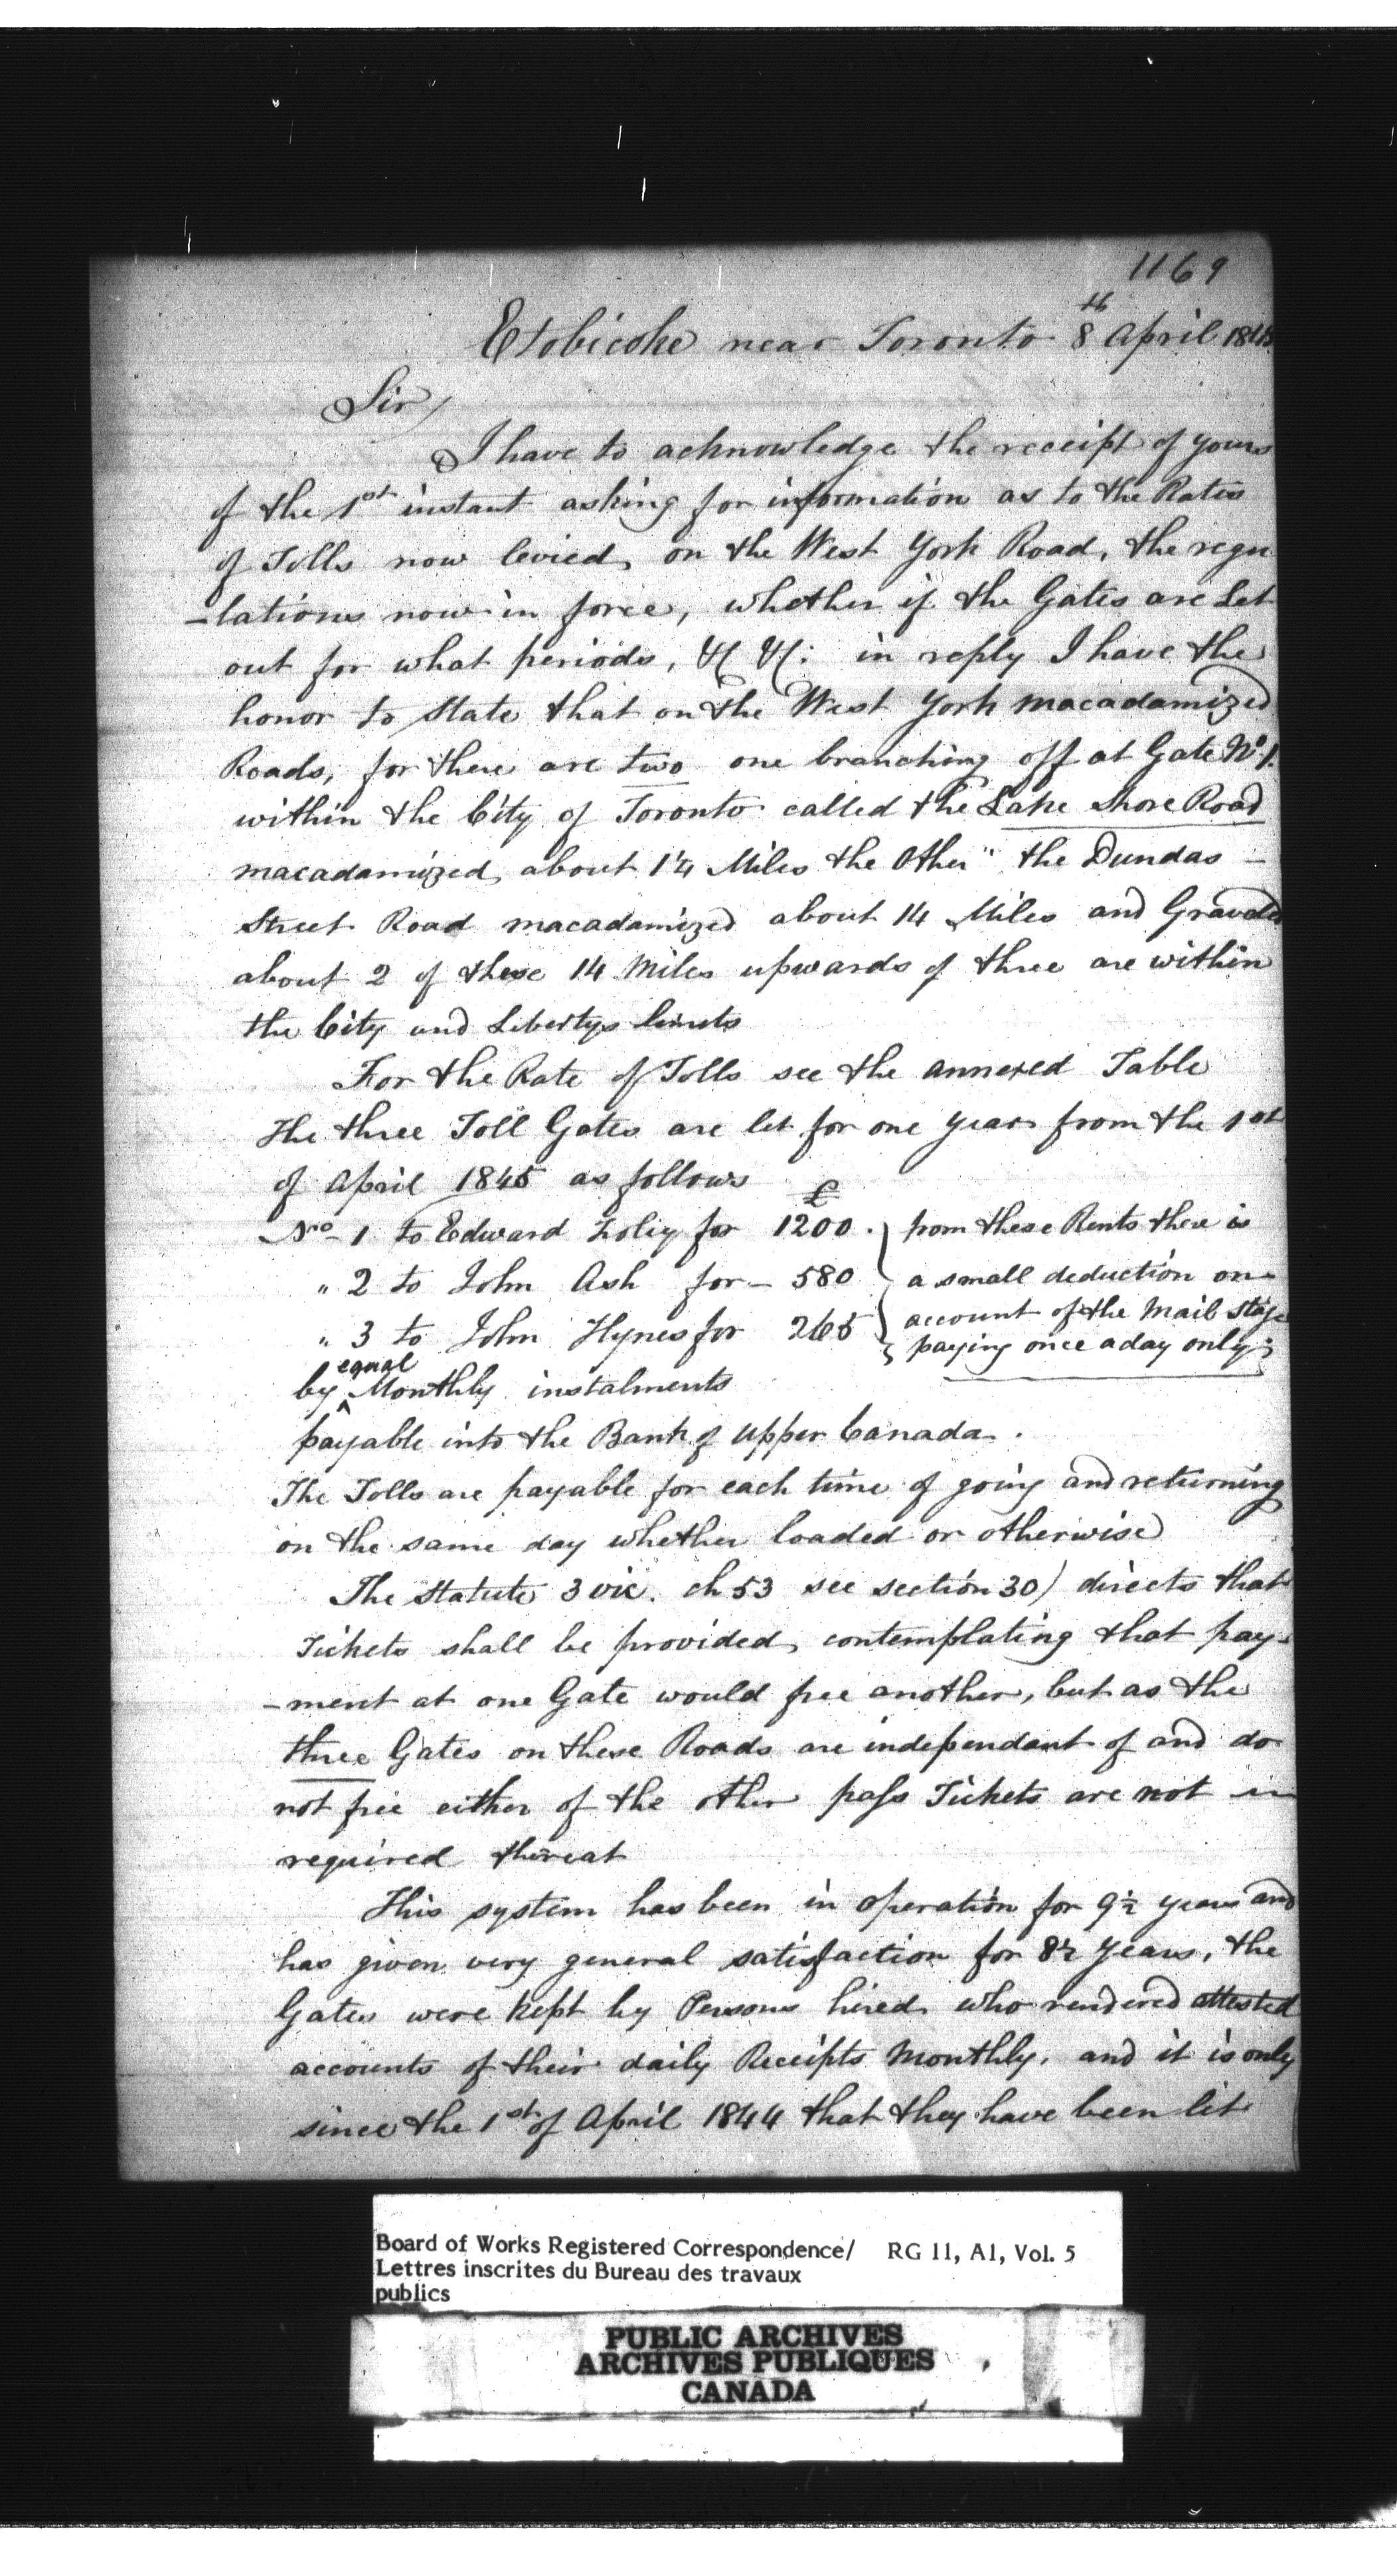 1169
Etobicoke near Toronto 8th April 1845
Sir,
I have to acknowledge the receipt of yours
of the 1st instant asking for information as to the Rates
of Tolls now levied, on the West York Road, the regu
-lations now in force, whether if the Gates are Let
out for what periods, &c &c: in reply I have the
honor to state that on the West York macadamized
Roads, for there are two one branching off at Gate No. 1.
within the City of Toronto called the Lake Shore Road
macadamized, about 1¼ Miles the Other " the Dundas -
Street Road macadamized about 14 Miles and Graveled
about 2 of these 14 Miles upwards of three are within
the City and Libertys limits
For the Rate of Tolls see the annexed Table
The three Toll Gates are let for one year from the 1st
of April 1845 as follows £
No- 1 to Edward for 1200 . } from these Rents there is
" 2 to John Ash for- 580 } a small deduction on
" 3 to John Hynes for 265 } account of the Mail stage
paying once a day only;
by equal Monthly instalments
payable into the Bank of Upper Canada .
The Tolls are payable for each time of going and returning
on the same day whether loaded or otherwise
The Statute 3 vic. ch 53 see section 30) directs that
Tickets shall be provided, contemplating that pay-
-ment at one Gate would free another, but as the
three Gates on these Roads are independant of and do
not free either of the other pass Tickets are not in
required thereat
This system has been in operation for 9½ years and
has given very general satisfaction for 8½ years, the
Gates were kept by Persons hired who rendered attested
accounts of their daily Receipts Monthly, and it is only
since the 1st of April 1844 that they have been let
Board of Works Registered Correspondence/ RG 11, A1, Vol. 5
Lettres inscrites du Bureau des travaux
publics
PUBLIC ARCHIVES
ARCHIVES PUBLIQUES
CANADA